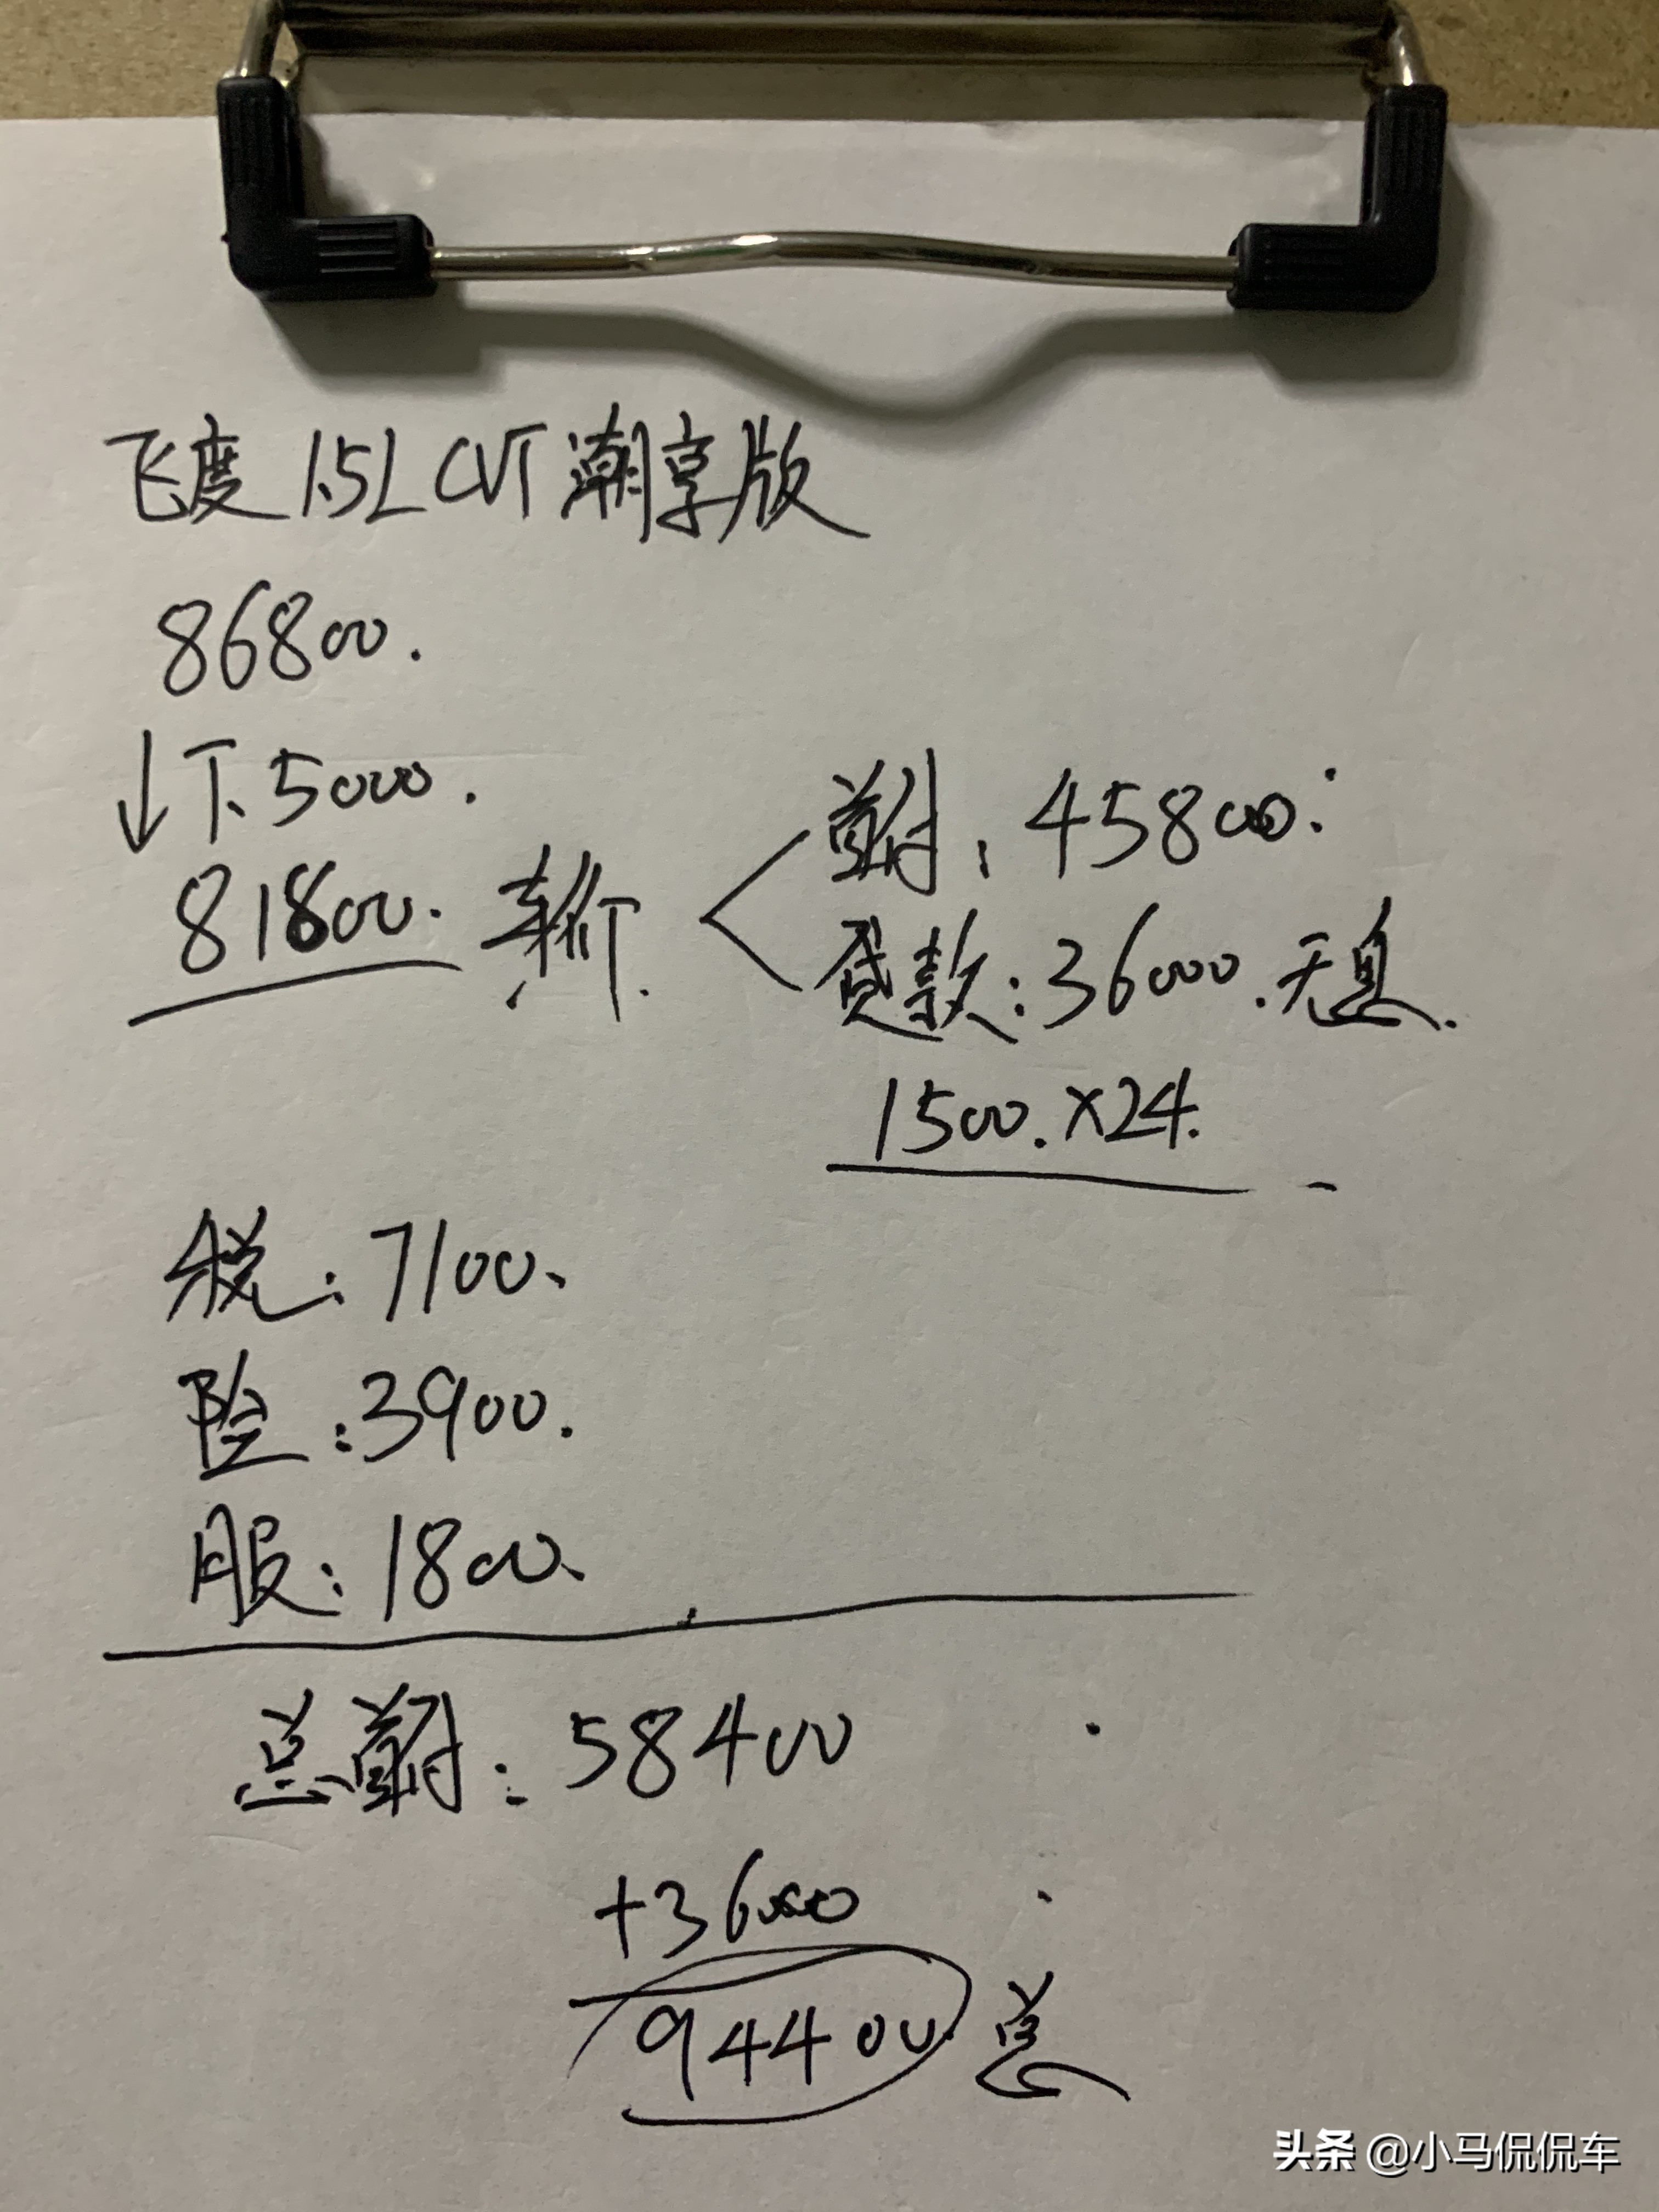 飞度 1.5L CVT 潮享版
86800.
↓下5000.
81800. 车价.
首付: 45800.
贷款: 36000. 无息.
1500. ×24.
税: 7100.
险: 3900.
服: 1800.
总首付: 58400
+36000
94400 总
头条 @小马侃侃车